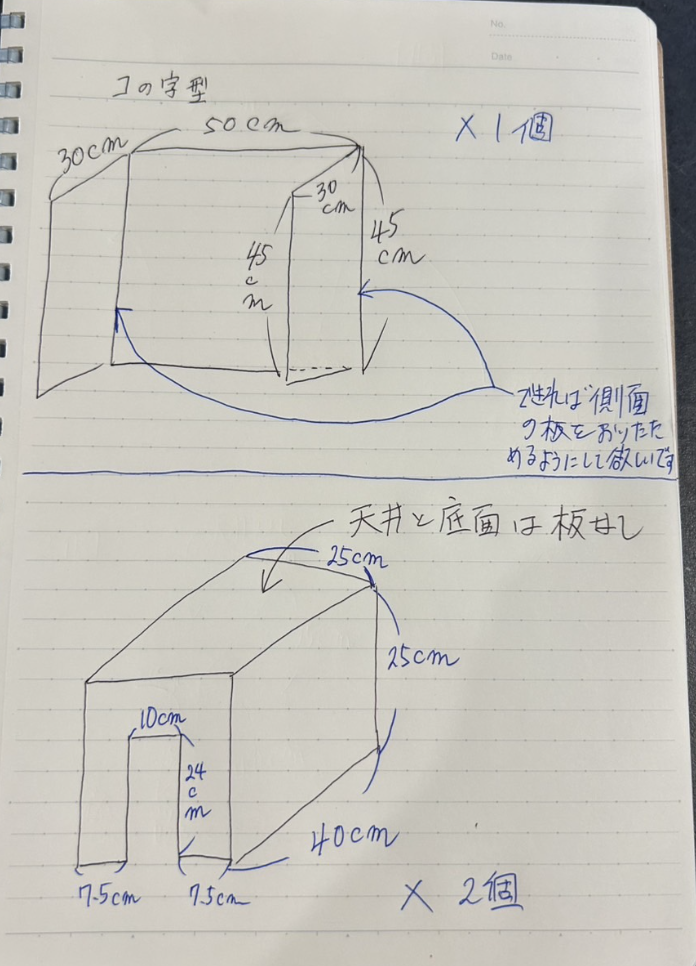 No.
Date
コの字型
50cm
×1個
30cm
30
cm
45
cm
45
c
m
できれば側面
の板をおりたた
めるようにして欲しいです
天井と底面は板なし
25cm
25cm
10cm
24
c
m
40cm
7.5cm
7.5cm
×2個